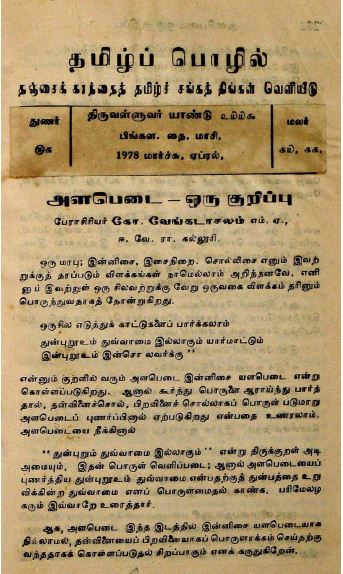 தமிழ்ப் பொழில்
தஞ்சைக் கரந்தைத் தமிழ்ச் சங்கத் திங்கள் வெளியீடு
துணர்
திருவள்ளுவர் யாண்டு
மலர்
பிங்கள. தை, மாசி,
1978 மார்ச்சு, ஏப்ரல்,
அளபெடை – ஒரு குறிப்பு
பேராசிரியர் கோ. வேங்கடாசலம் எம். ஏ.,
ஈ. வே. ரா. கல்லூரி.
ஒரு மரபு; இன்னிசை, இசைநிறை. சொல்லிசை எனும் இவற்
றுக்குத் தரப்படும் விளக்கங்கள் நாமெல்லாம் அறிந்தனவே, எனி
னும் இவற்றுள் ஒரு சிலவற்றுக்கு வேறு ஒருவகை விளக்கம் தரினும்
பொருந்துவதாகத் தோன்றுகிறது.
ஒருசில எடுத்துக் காட்டுகளைப் பார்க்கலாம்
துன்புறூஉம் துவ்வாமை இல்லாகும் யார்மாட்டும்
இன்புறூஉம் இன்சொ லவர்க்கு ’’
என்னும் குறளில் வரும் அளபெடை இன்னிசை யளபெடை என்று
கொள்ளப்படுகிறது. ஆனால் கூர்ந்து பொருளை ஆராய்ந்து பார்த்
தால், தன்வினைச்சொல், பிறவினைச் சொல்லாகப் பொருள் படுமாறு
அளபெடைப் புணர்ப்பினால் ஏற்படுகிறது என்பதை உணரலாம்.
அளபெடையை நீக்கினால்
‘‘ துன்புறும் துவ்வாமை இல்லாகும் ’’ என்று திருக்குறள் அடி
அமையும். இதன் பொருள் வெளிப்படை; ஆனால் அளபெடையைப்
புணர்த்திய துன்புறூஉம் துவ்வாமை என்பதற்குத் துன்பத்தை உறு
விக்கின்ற துவ்வாமை எனப் பொருளமைதல் காண்க. பரிமேலழ
கரும் இவ்வாறே உரைத்தார்.
ஆக, அளபெடை இந்த இடத்தில் இன்னிசை யளபெடையாக
நில்லாமல், தன்வினையைப் பிறவினையாகப் பொருளாக்கம் செய்தற்கு
வந்ததாகக் கொள்ளப்படுதல் சிறப்பாகும் எனக் கருதுகிறேன்.